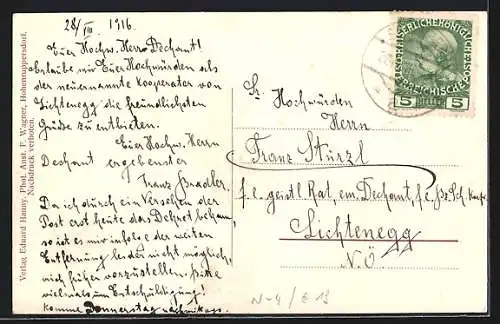 28/VIII 1916.
Euer Hochw. Herr Dechant!
Erlaube mir Euer Hochwürden als
der neuernannte Kooperator von
Lichtenegg die freundlichsten
Grüße zu entbieten.
Euer Hochw. Herrn
Dechant ergebenster
Franz Bradler.
Da ich durch ein Versehen der
Post erst heute das Dekret bekam,
so ist es mir infolge der weiten
Entfernung leider nicht möglich,
mich früher vorzustellen. Bitte
vielmals um Entschuldigung!
Komme Donnerstag nachmittags.
Verlag Eduard Hanny, Phot. Anst. F. Wagner, Hohenruppersdorf.
Nachdruck verboten.
5 5
Sr. Hochwürden
Herrn
Franz Sturzl
f. e. geistl. Rat, em. Dechant, f. e.
Lichtenegg
N.Ö.
N-4/E 13